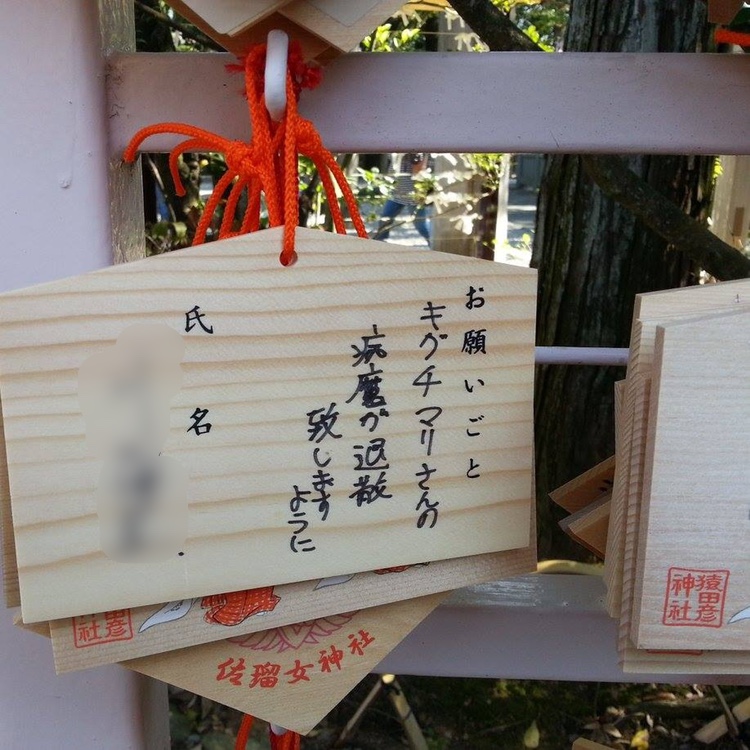 お願いごと
キグチマリさんの
病魔が退散
致します
ように
氏名
猿田彦
神社
田彦
社
佐瑠女神社